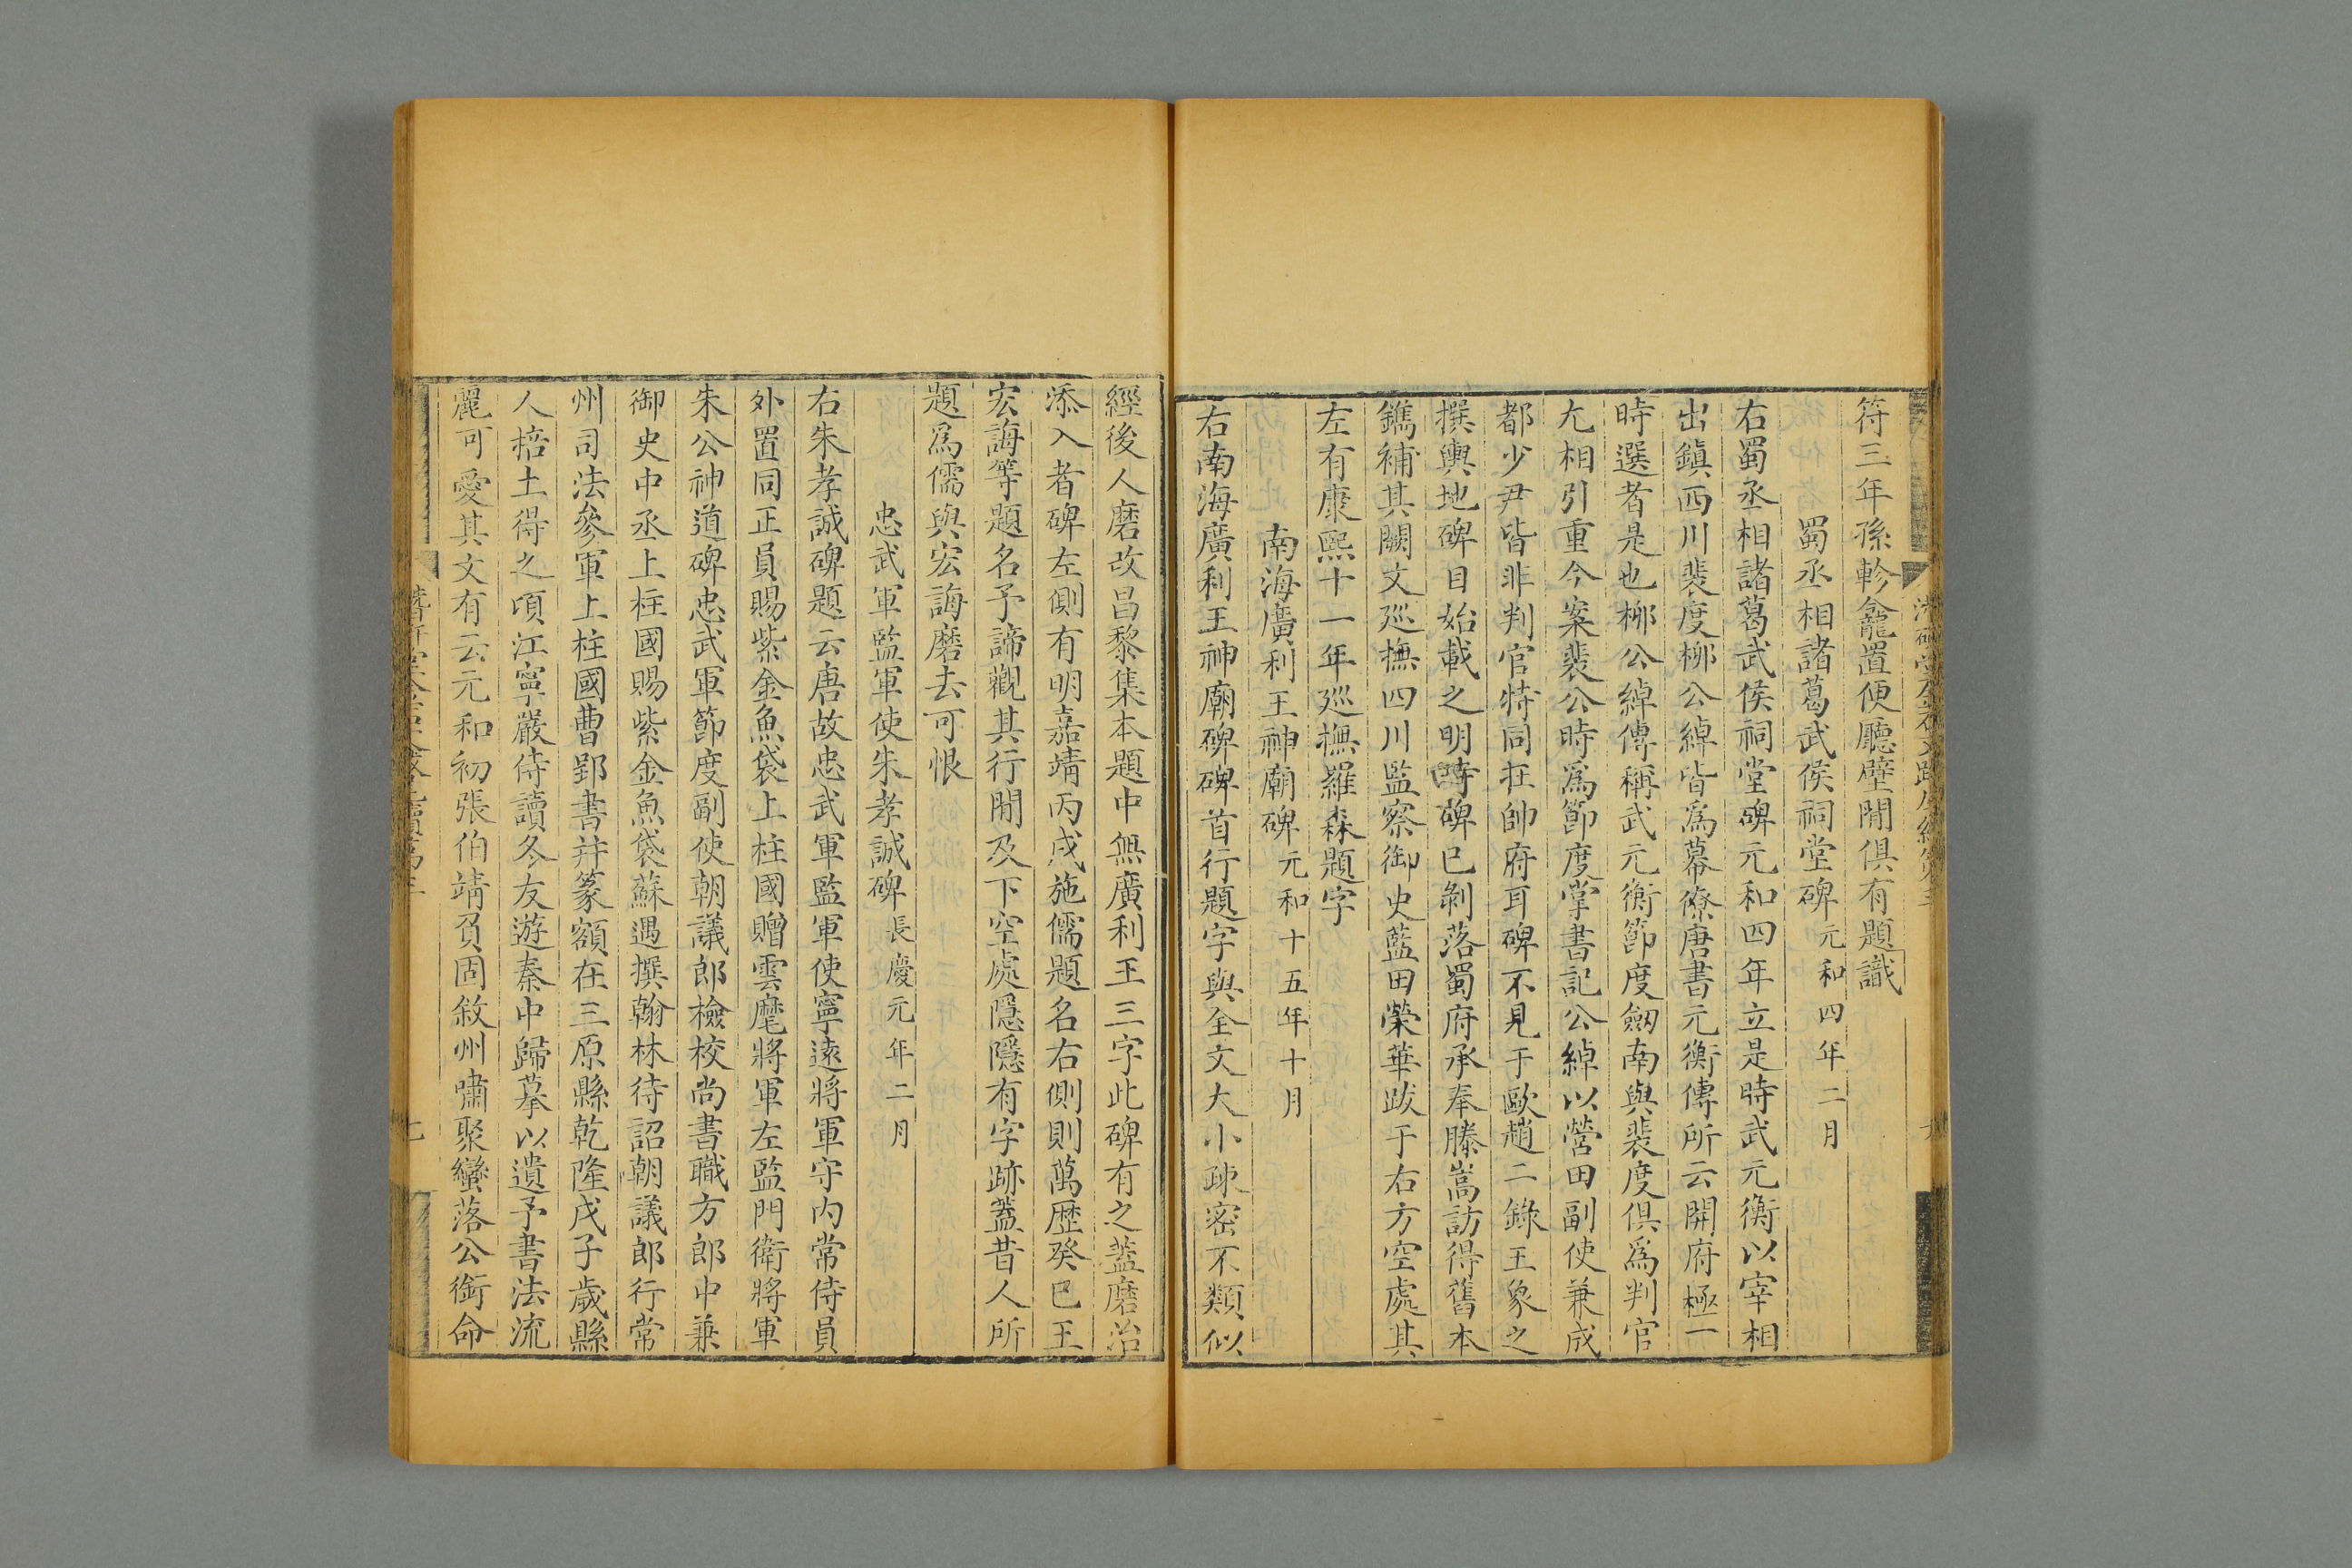 符三年孫軫龕置便廳壁閒俱有題識
蜀丞相諸葛武侯祠堂碑元和四年二月
右蜀丞相諸葛武侯祠堂碑元和四年立是時武元衡以宰相
出鎭西川裴度栁公綽皆爲幕僚唐書元衡傳所云開府極一
時選者是也栁公綽傳稱武元衡節度劒南與裴度俱爲判官
尤相引重今案裴公時爲節度掌書記公綽以營田副使兼成
都少尹皆非判官特同在帥府耳碑不見于歐趙二錄王象之
撰輿地碑目始載之明時碑已剝落蜀府承奉滕嵩訪得舊本
鐫補其闕文巡撫四川監察御史藍田榮華跋于右方空處其
左有康熙十一年巡撫羅森題字
南海廣利王神廟碑元和十五年十月
右南海廣利王神廟碑碑首行題字與全文大小疎密不類似
經後人磨改昌黎集本題中無廣利王三字此碑有之蓋磨治
添入者碑左側有明嘉靖丙戌施儒題名右側則萬歴癸巳王
宏誨等題名予諦觀其行閒及下空處隱隱有字跡蓋昔人所
題爲儒與宏誨磨去可恨
忠武軍監軍使朱孝誠碑長慶元年二月
右朱孝誠碑題云唐故忠武軍監軍使寧遠將軍守内常侍員
外置同正員賜紫金魚袋上柱國贈雲麾將軍左監門衛將軍
朱公神道碑忠武軍節度副使朝議郎檢校尚書職方郎中兼
御史中丞上柱國賜紫金魚袋蘇遇撰翰林待詔朝議郎行常
州司法參軍上柱國曹郢書并篆額在三原縣乾隆戊子歲縣
人掊土得之頃江寧嚴侍讀冬友遊秦中歸摹以遺予書法流
麗可愛其文有云元和初張伯靖負固敘州嘯聚蠻落公銜命
七